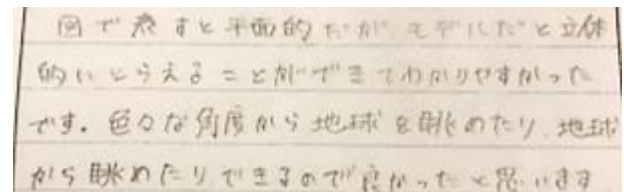 図で表すと平面的だが、モデルだと立体
的にとらえることができてわかりやすかった
です。色々な角度から地球を眺めたり、地球
から眺めたりできるので良かったと思います